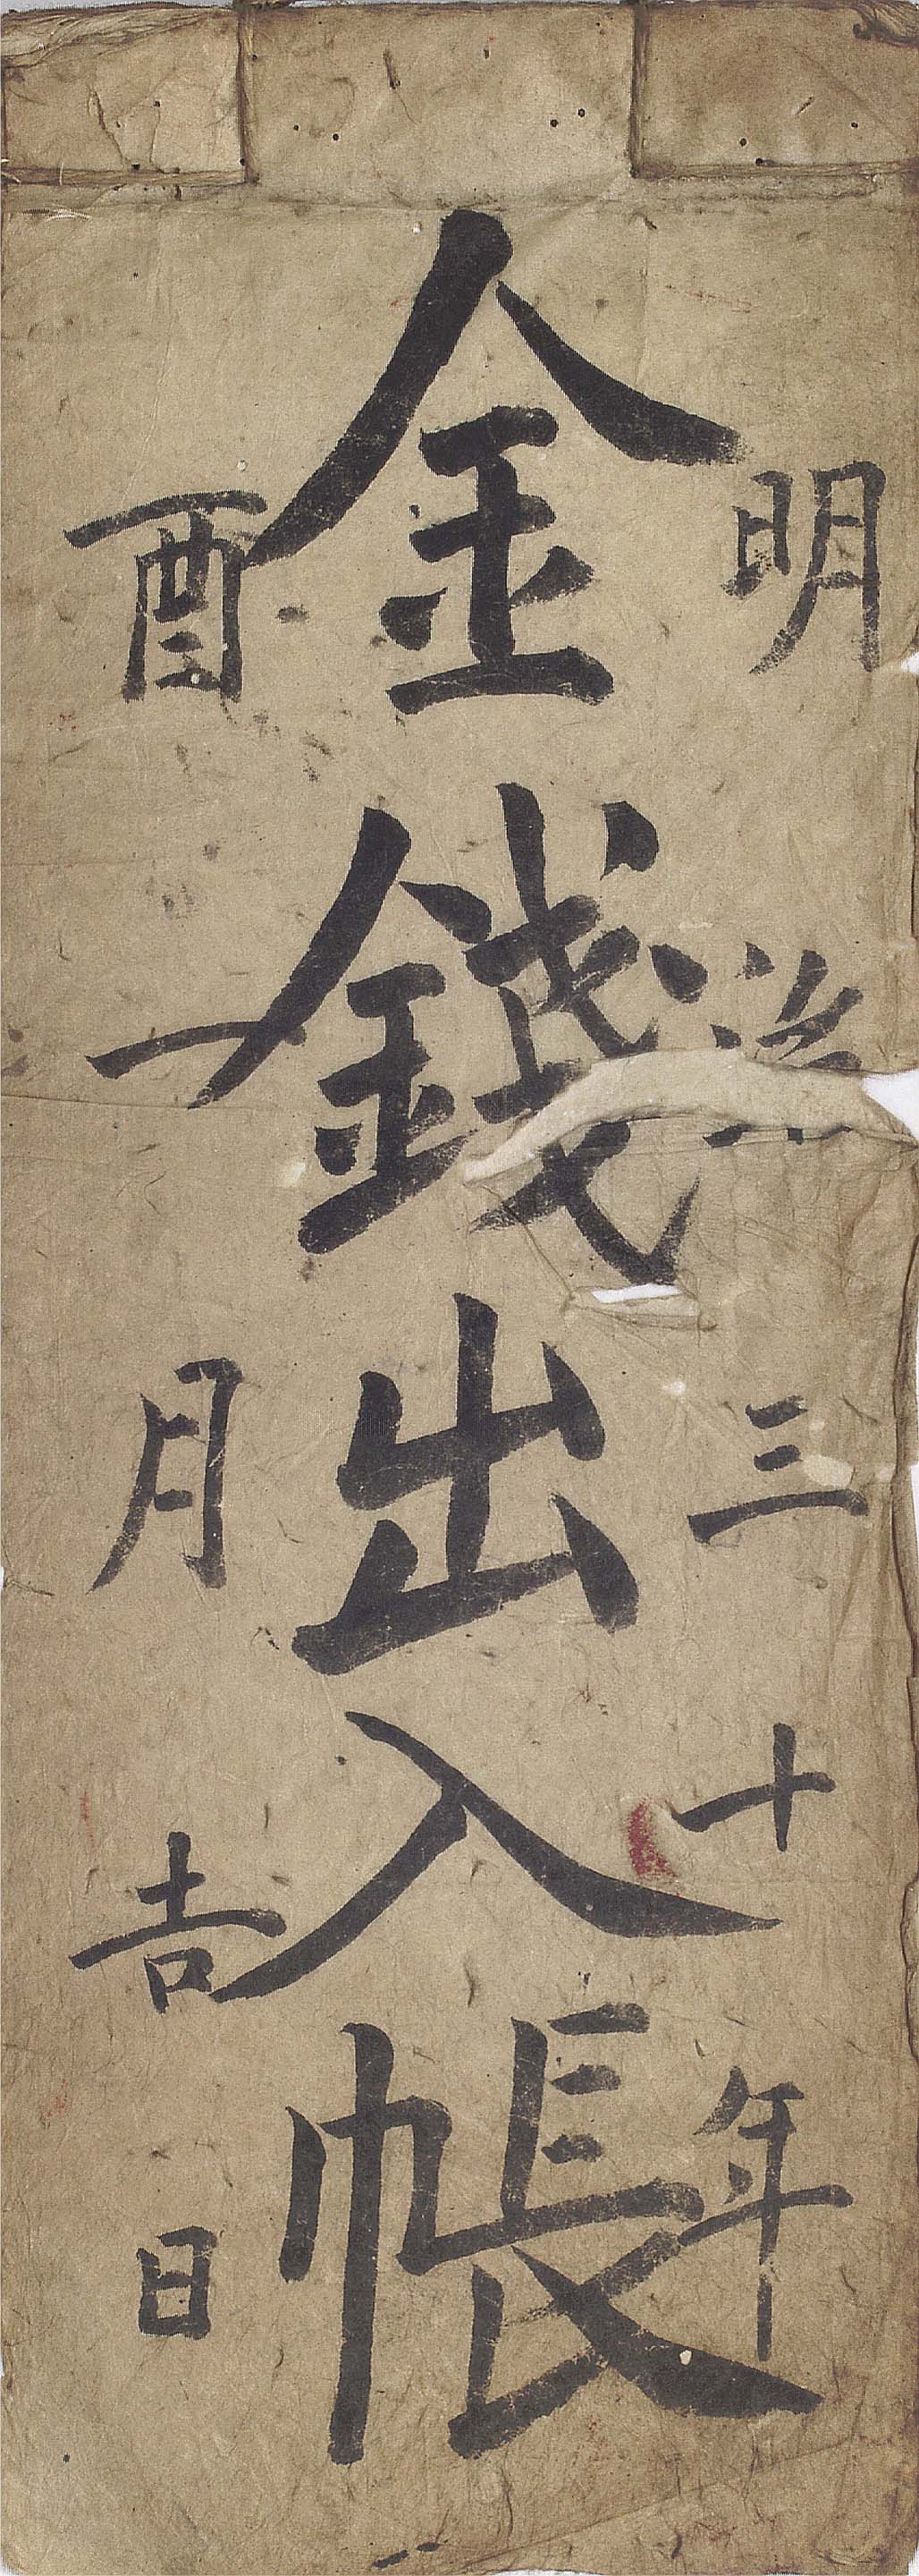 明治三十年
金錢出入帳
酉一月吉日